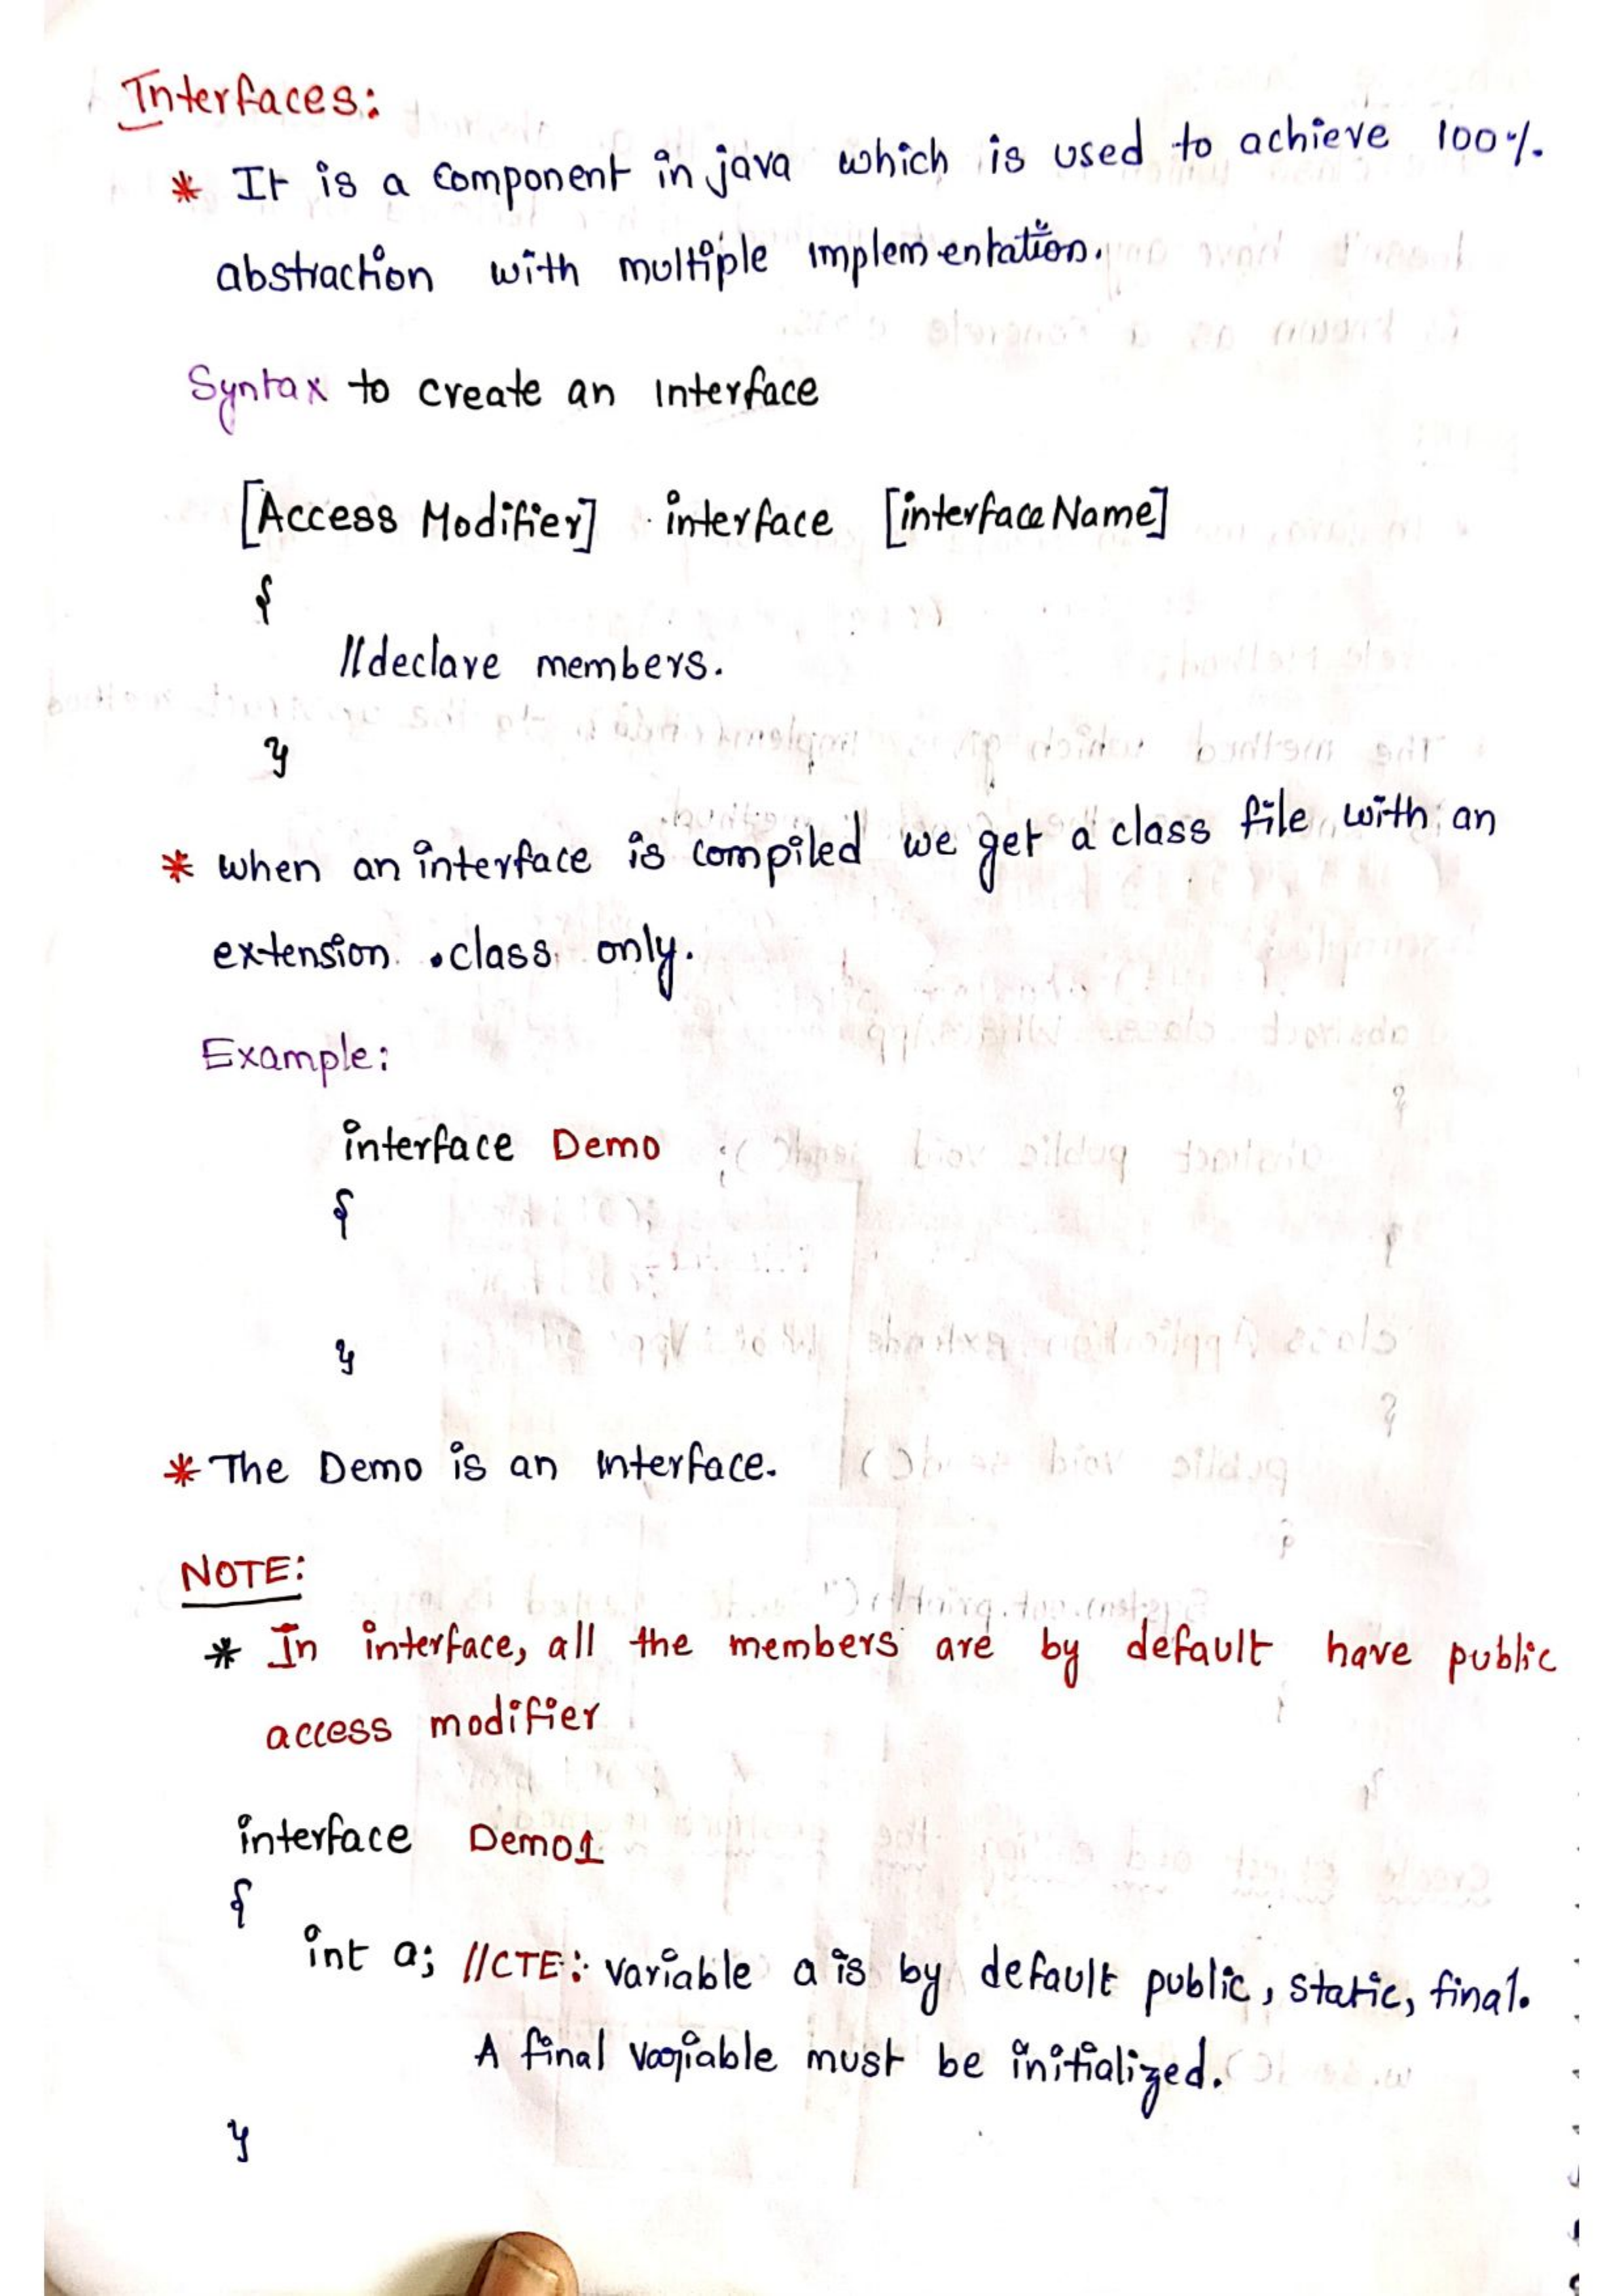 Interfaces:
* It is a component in java which is used to achieve 100%
abstraction with multiple implementation.
Syntax to create an Interface
[Access Modifier] interface [interfaceName]
{
//declare members.
}
* when an interface is compiled we get a class file with an
extension .class only.
Example:
interface Demo
{
}
* The Demo is an Interface.
NOTE:
* In interface, all the members are by default have public
access modifier
interface Demo1
{
int a; //CTE: variable a is by default public, static, final.
A final variable must be initialized.
}